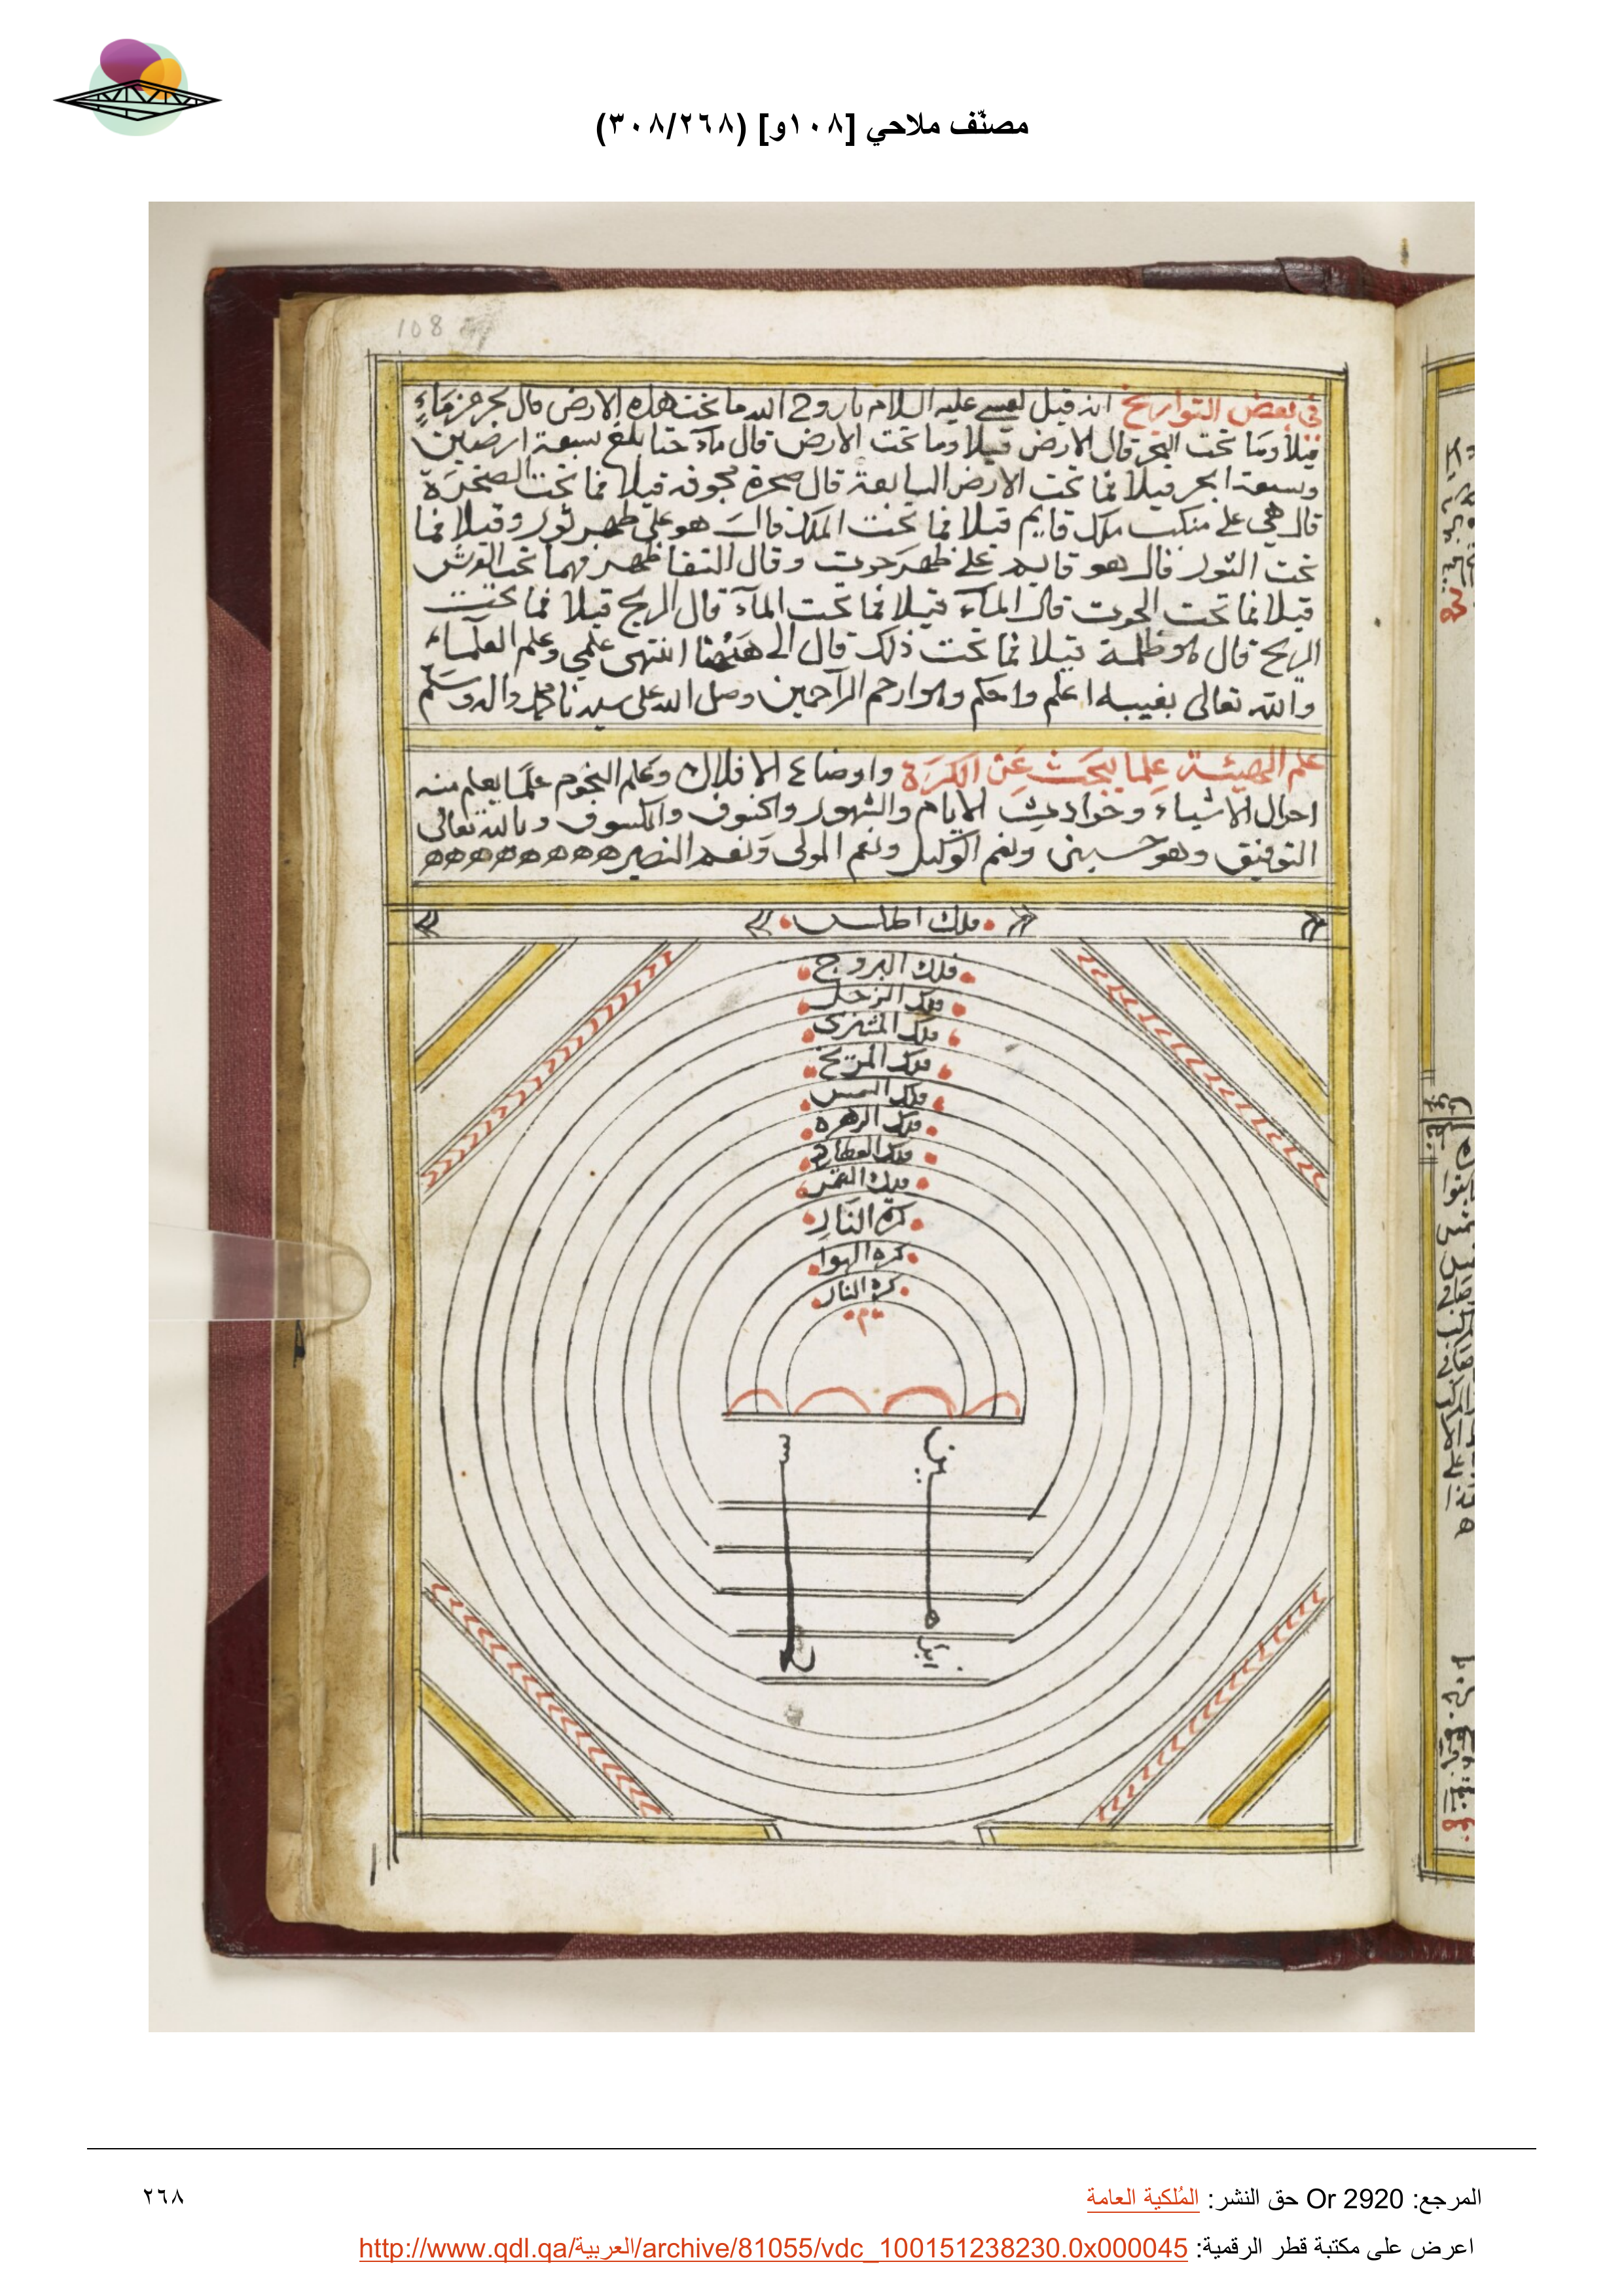 مصنّف ملاحي [١٠٨و] (٣٠٨/٢٦٨)
108
في بعض التواريخ انه قيل لعيسى عليه السلام يا روح الله ما تحت هذه الارض قال بحر من ماءٍ
قيلا وما تحت البحر قال الارض قيلا وما تحت الارض قال ماء حتا بلغ سبعة ارضين
وسبعة ابحر قيلا فما تحت الارض السابعة قال صخرة مجوفه قيلا فما تحت الصخرة
قال هي على منكب ملك قايم قيلا فما تحت الملك قال هو على ظهر ثور وقيلا فما
تحت الثور قال هو قايم على ظهر حوت وقال التقا ظهر فهما تحت العرش
قيلا فما تحت الحوت قال الماء قيلا فما تحت الماء قال الريح قيلا فما تحت
الريح قال هو ظلمة قيلا فما تحت ذلك قال الى ههنا انتهى علمي وعلم العلماء
والله تعالى بغيبه اعلم واحكم وهو ارحم الراحمين وصل الله على سيدنا محمد واله وسلم
علم الهيئة علما يبحث عن الكرة واوضاع الافلاك وعلم النجوم علما يعلم منه
احوال الاشياء وحوادث الايام والشهور والخسوف والكسوف وبالله تعالى
التوفيق وهو حسبنى ونعم الوكيل ونعم المولى ونعم النصير ههههههههه
فلك اطلس
فلك البروج
فلك الزحل
فلك المشترى
فلك المريخ
فلك الشمس
فلك الزهره
فلك العطارد
فلك القمر
كرة النار
كره الهوا
كرة النار
م
المرجع: Or 2920 حق النشر: المُلكية العامة
٢٦٨
اعرض على مكتبة قطر الرقمية: http://www.qdl.qa/العربية/archive/81055/vdc_100151238230.0x000045